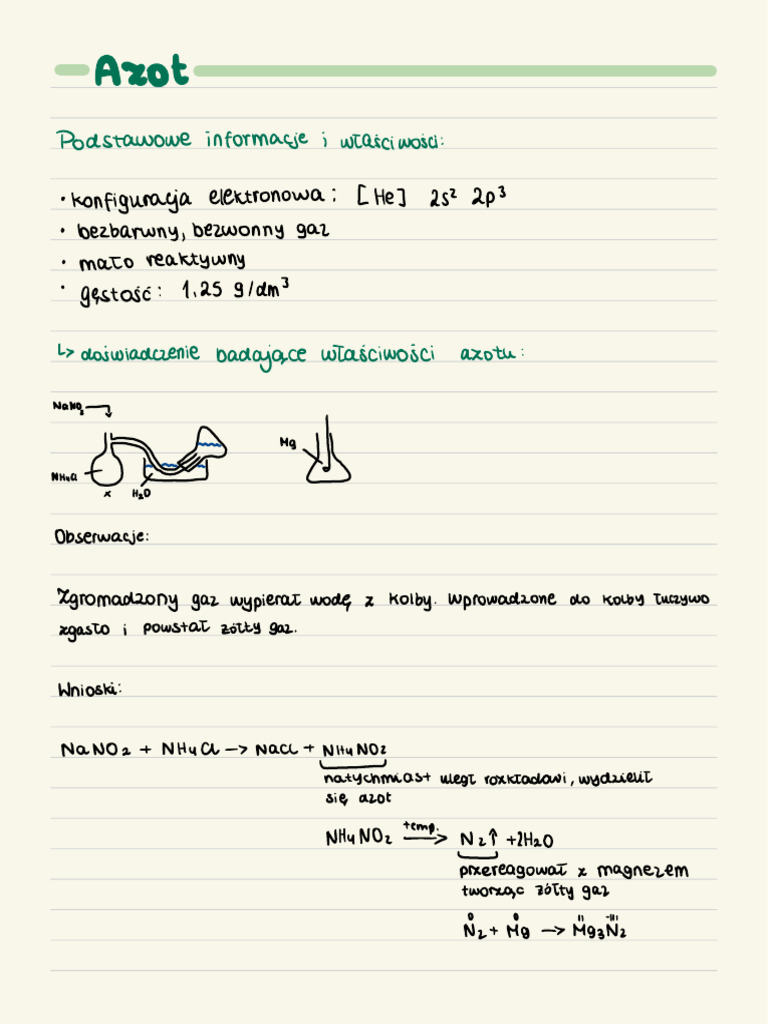 Azot
Podstawowe informacje i właściwości:
• konfiguracja elektronowa: [He] 2s² 2p³
• bezbarwny, bezwonny gaz
• mało reaktywny
• gęstość: 1.25 g/dm³
↳ doświadczenie badające właściwości azotu:
NaNO₂
Mg
NH₄Cl
x
H₂O
Obserwacje:
Zgromadzony gaz wypierał wodę z kolby. Wprowadzone do kolby łuczywo
zgasło i powstał żółty gaz.
Wnioski:
NaNO₂ + NH₄Cl → NaCl + NH₄NO₂
natychmiast uległ rozkładowi, wydzielił
się azot
NH₄NO₂ temp.→ N₂↑ + 2H₂O
przereagował z magnezem
tworząc żółty gaz
0 0 II -III
N₂ + Mg → Mg₃N₂